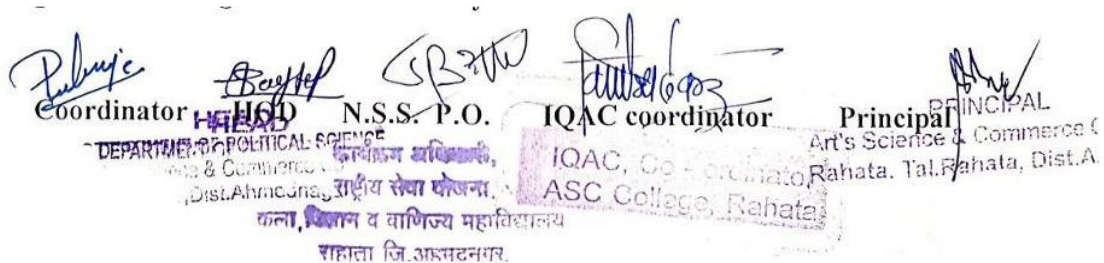 Coordinator HOD N.S.S. P.O. IQAC coordinator Principal
HEAD
DEPARTMENT OF POLITICAL SCIENCE
& Commerce
Dist.Ahmednag
कार्यक्रम अधिकारी,
राष्ट्रीय सेवा योजना,
कला, विज्ञान व वाणिज्य महाविद्यालय
राहाता जि.अहमदनगर.
IQAC, Co-ordinator,
ASC College, Rahata
PRINCIPAL
Art's Science & Commerce C
Rahata. Tal.Rahata, Dist.A.